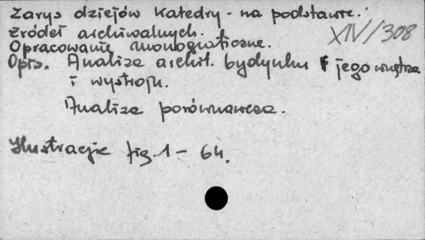 Zarys dziejów Katedry - na podstawie.
źródeł archiwalnych.
XIV/308
Opracowanie monograficzne.
Opis. Analiza archit. budynku jego wnętrza
i wystroju.
Analiza porównawcza.
Ilustracje fig. 1 - 64.